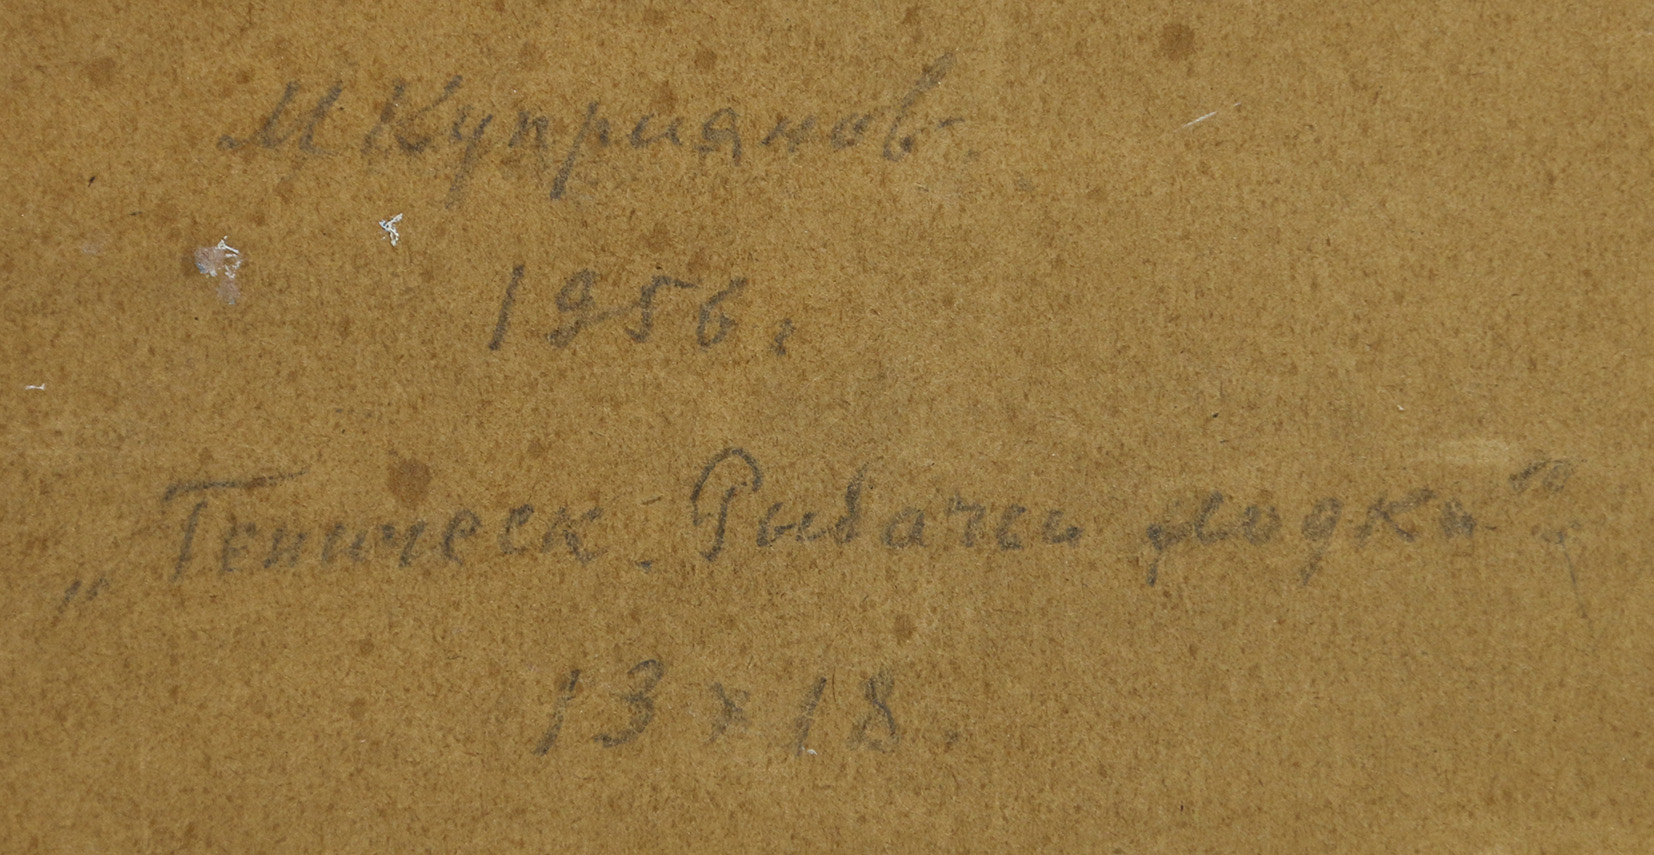 М Куприянов.
1956.
„Геническ. Рыбачьи лодки".
13 х 18.